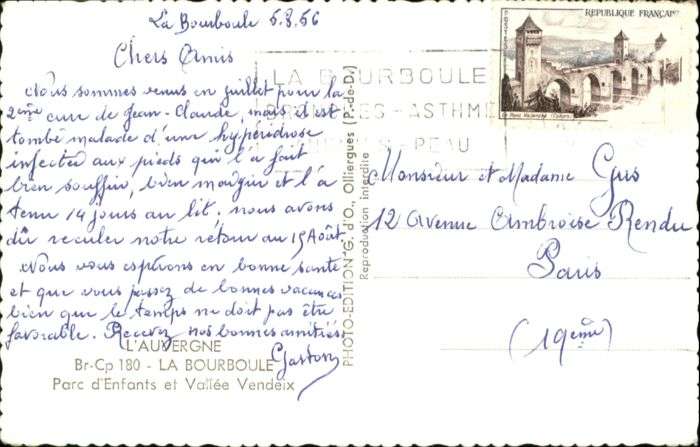 La Bourboule 5.8.56
Chers Amis
Nous sommes venus en juillet pour la
2ème cure de Jean-Claude, mais il est
tombé malade d'une hyperidrose
infectée aux pieds qui l'a fait
bien souffrir, bien maigrir et l'a
tenu 14 jours au lit. nous avons
dû reculer notre retour au 15 Août.
Nous vous espérons en bonne santé
et que vous passez de bonnes vacances
bien que le temps ne doit pas être
favorable. Recevez nos bonnes amitiés
Gaston
L'AUVERGNE
Br-Cp 180 - LA BOURBOULE
Parc d'Enfants et Vallée Vendeix
PHOTO-EDITION "G. d'O., Olliergues (P.-de-D.)
Reproduction interdite
LA BOURBOULE
BRONCHES - ASTHME
PEAU
REPUBLIQUE FRANÇAISE
POSTES
Le Pont Valentré (Cahors)
Monsieur et Madame Gus
12 Avenue Ambroise Rendu
Paris
(19ème)